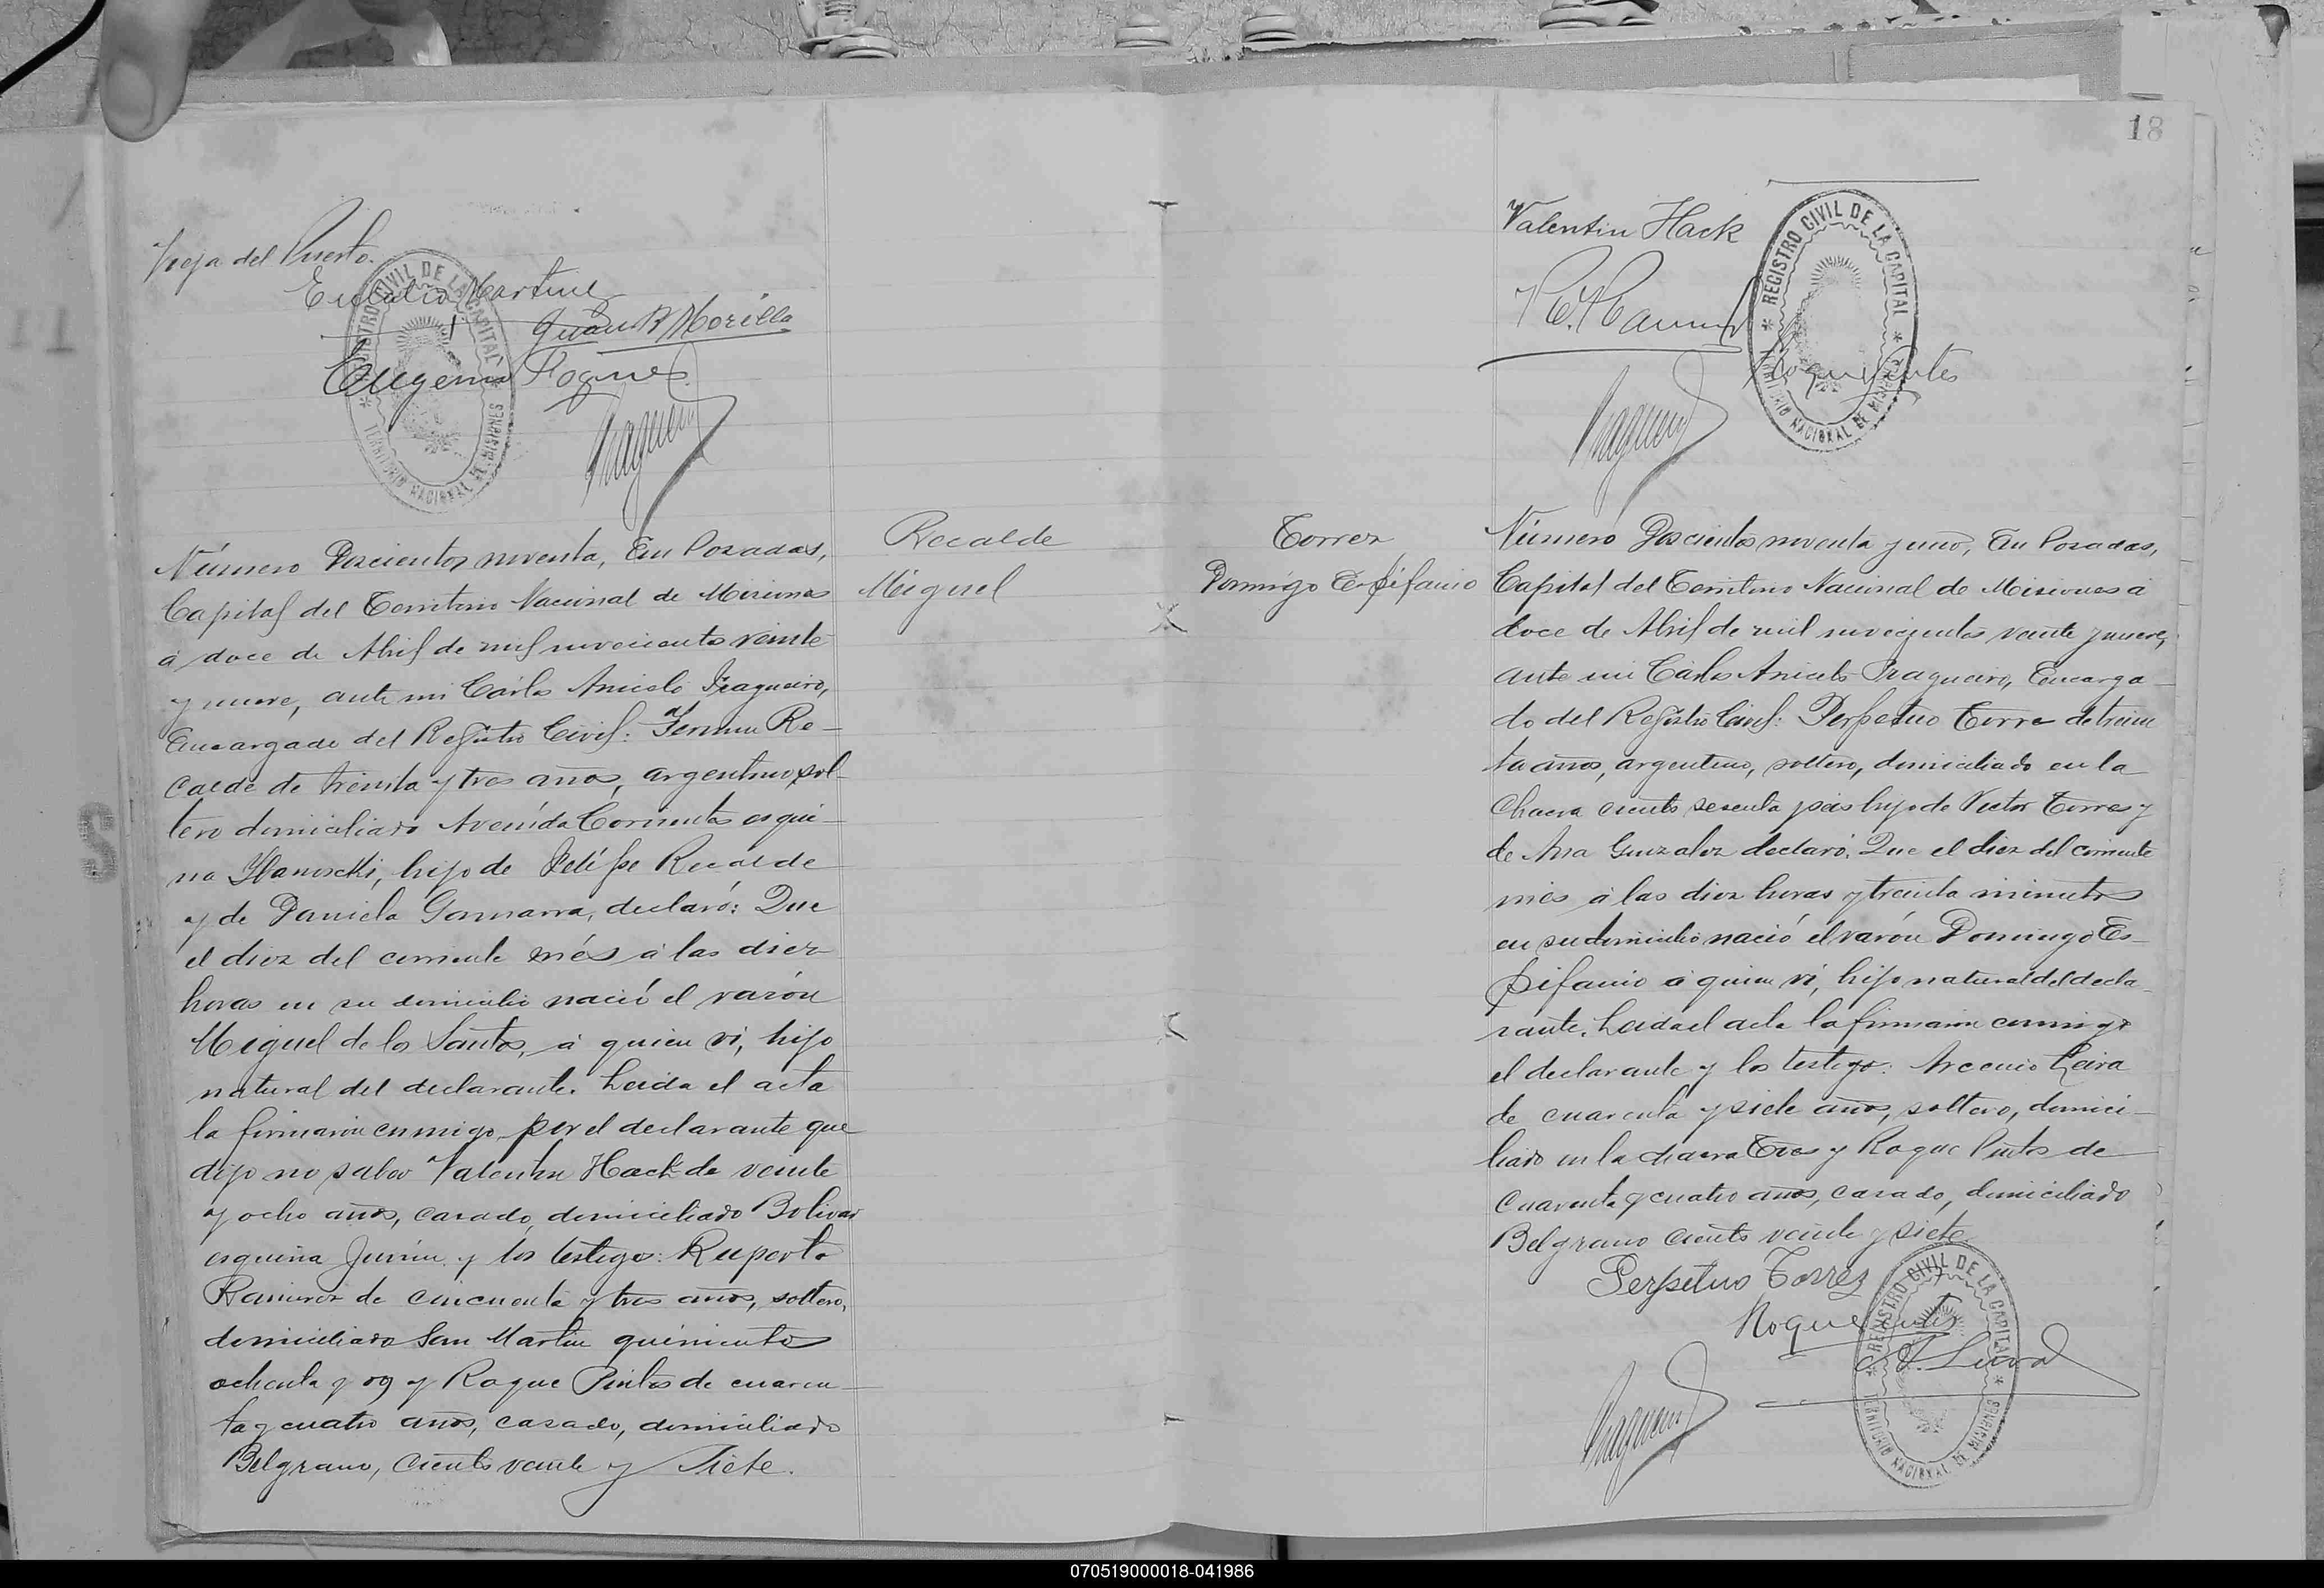 Vieja del Puerto.
Eulalio Martinez
Juan B Morillo
Eugenio
REGISTRO CIVIL DE LA CAPITAL
TERRITORIO NACIONAL DE MISIONES
Número Doscientos noventa, En Posadas,
Capital del Territorio Nacional de Misiones
á doce de Abril de mil novecientos veinte
y nueve, ante mi Cárlos Aniceto Fragueiro,
Encargado del Registro Civil: Fermin Re-
calde de treinta y tres años, argentino, sol-
tero domiciliado Avenída Corrientes esqui-
na, hijo de Felípe Recalde
y de Daniela Gamarra, declaró: Que
el diez del corriente més á las diez
horas en su domicilio nació el varón
Miguel de los Santos, á quien ví, hijo
natural del declarante. Leida el acta
la firmaron conmigo, por el declarante que
dijo no saber Valentin Hack de veinte
y ocho años, casado, domiciliado Bolivar
esquina Junín y los testigos: Ruperto
Ramirez de cincuenta y tres años, soltero,
domiciliado San Martin quinientos
ochenta y y Roque Pintos de cuaren-
ta y cuatro años, casado, domiciliado
Belgrano, ciento veinte y siete.
Recalde
Miguel
18
Valentin Hack
R. Ramirez
Roque Pintos
REGISTRO CIVIL DE LA CAPITAL
TERRITORIO NACIONAL DE MISIONES
Torres
Domingo Epifanio
Número Doscientos noventa y uno, En Posadas,
Capital del Territorio Nacional de Misiones á
doce de Abril de mil novecientos veinte y nueve,
ante mi Cárlos Aniceto Fragueiro, Encarga-
do del Registro Civil: Perpetuo Torres de trein
ta años, argentino, soltero, domiciliado en la
Chacra ciento sesenta y seis hijo de Victor Torres y
de Ana Gonzalez declaró: Que el diez del corriente
més á las diez horas y treinta minutos
en su domicilio nació el varón Domingo E-
pifanio á quien ví, hijo natural del decla-
rante. Leida el acta la firmaron conmigo
el declarante y los testigos: Arcenio Leiva
de cuarenta y siete años, soltero, domici-
liado en la chacra Tres y Roque Pintos de
cuarenta y cuatro años, casado, domiciliado
Belgrano ciento veinte y siete.
Perpetuo Torres
Roque Pintos
A. Leiva
REGISTRO CIVIL DE LA CAPITAL
TERRITORIO NACIONAL DE MISIONES
070519000018-041986